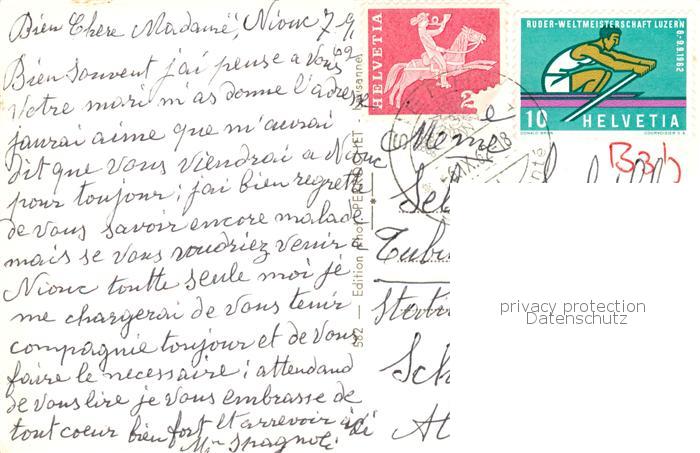 Bien Chere Madame, Niouc 7-9
62
Bien souvent j'ai pense a vous
Votre mari m'as donne l'adresse
jaurai aime que m'aurai
dit que vous viendrai a Niouc
pour toujour ; j'ai bien regrette
de vous savoir encore malade
mais se vous voudriez venir a
Niouc toutte seule moi je
me chargerai de vous tenir
compagnie toujour et de vous
faire le necessaire ; attendand
de vous lire je vous embrasse de
tout coeur bien fort et arrevoir
Spagnoli
HELVETIA
2
RUDER-WELTMEISTERSCHAFT LUZERN
6-9.9.1962
10 HELVETIA
562 — Edition Phot. PERROCHET - Lausanne
B3b
Stati
Sch
privacy protection
Datenschutz